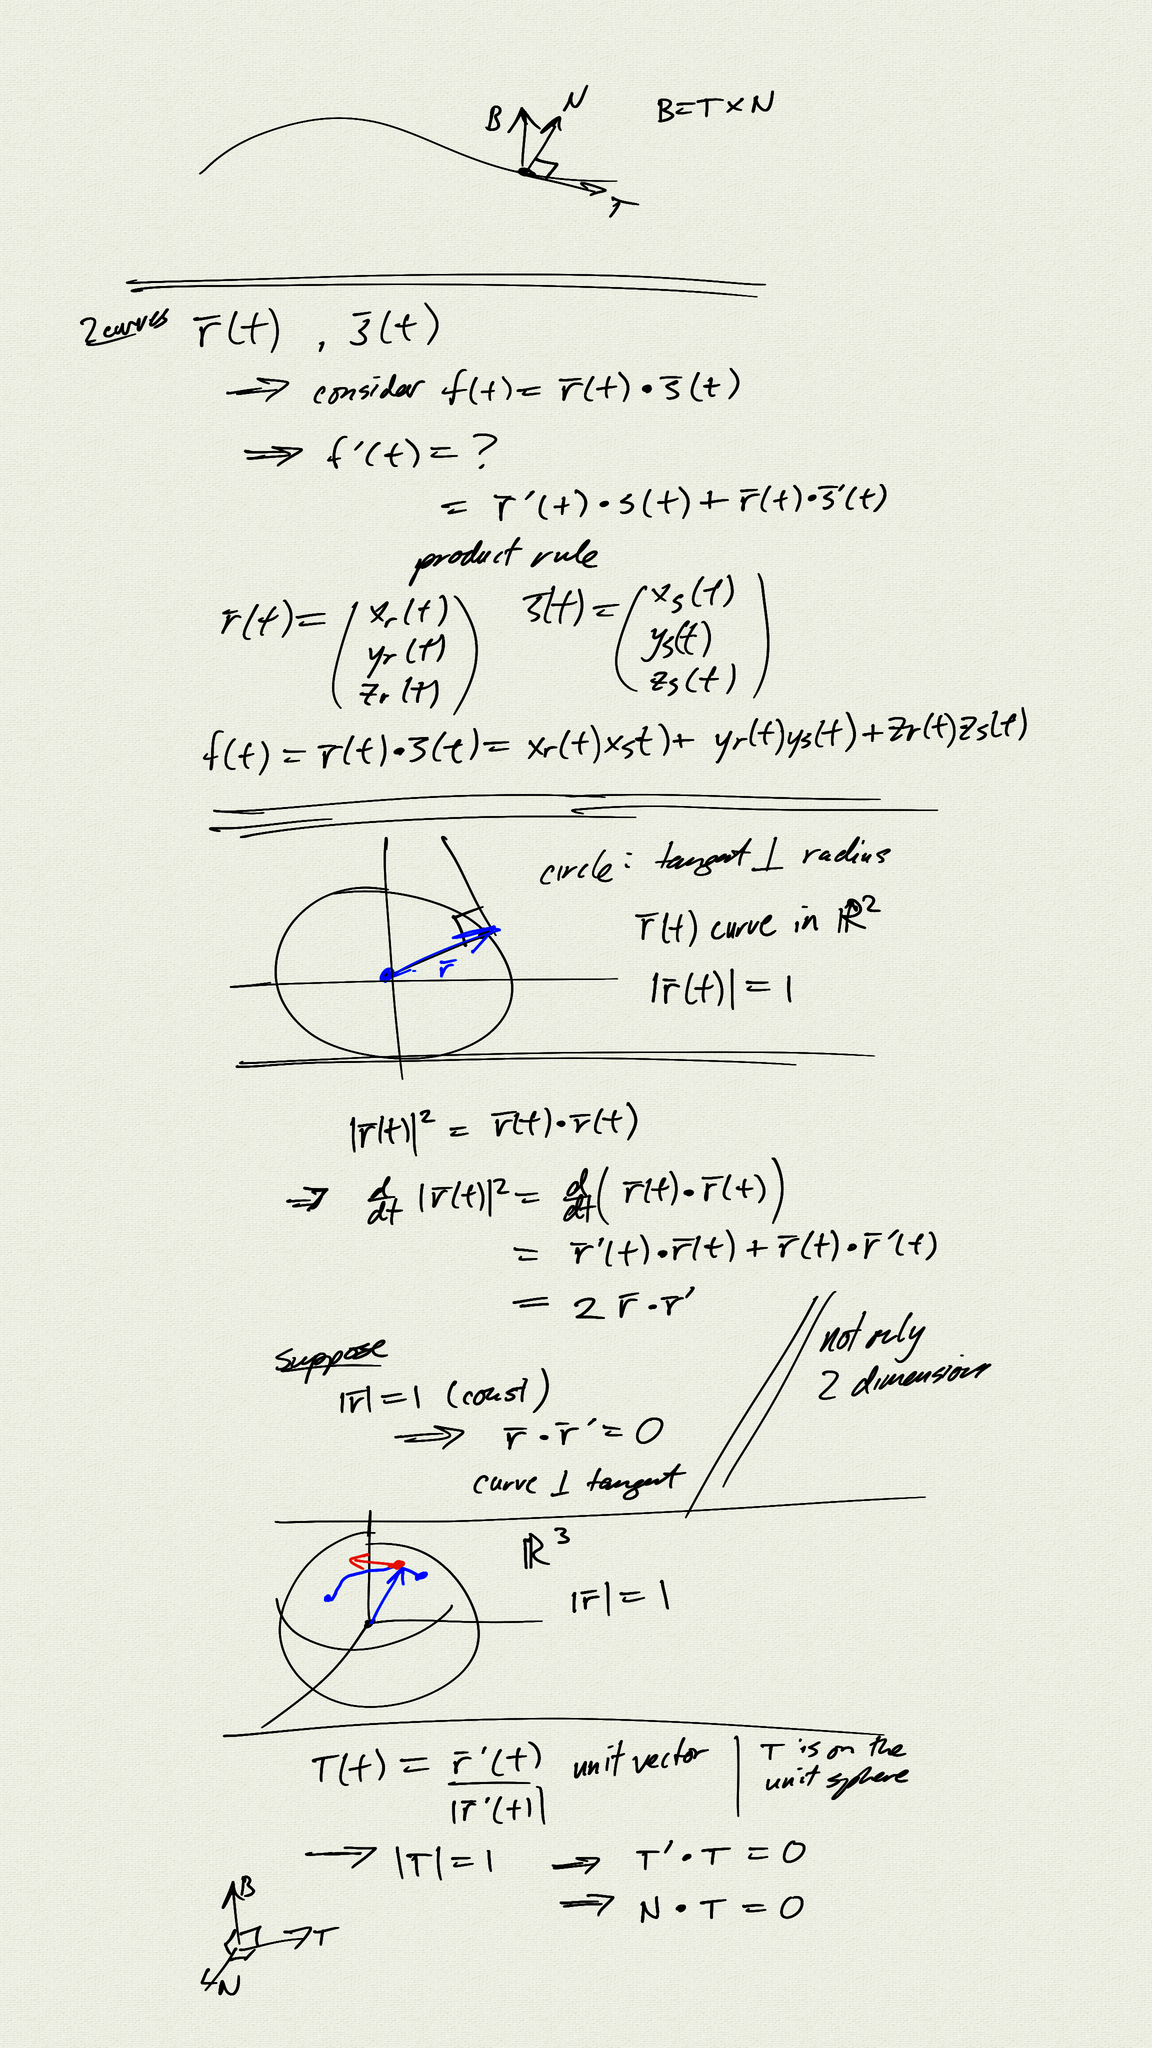 B N B=T×N
T
2 curves r̄(t) , s̄(t)
⟹ consider f(t) = r̄(t) • s̄(t)
⟹ f'(t) = ?
= r̄'(t) • s(t) + r̄(t) • s̄'(t)
product rule
r̄(t) = (x_r(t) y_r(t) z_r(t)) s̄(t) = (x_s(t) y_s(t) z_s(t))
f(t) = r̄(t) • s̄(t) = x_r(t)x_s t) + y_r(t)y_s(t) + z_r(t)z_s(t)
circle : tangent ⊥ radius
r̄(t) curve in ℝ²
r̄
|r̄(t)| = 1
|r̄(t)|² = r̄(t) • r̄(t)
⟹ d/dt |r̄(t)|² = d/dt ( r̄(t) • r̄(t) )
= r̄'(t) • r̄(t) + r̄(t) • r̄'(t)
= 2 r̄ • r̄'
not only
2 dimensions
Suppose
|r̄| = 1 (const)
⟹ r̄ • r̄' = 0
curve ⊥ tangent
ℝ³
|r̄| = 1
T(t) = r̄'(t) / |r̄'(t)| unit vector | T is on the
unit sphere
⟹ |T| = 1 ⟹ T' • T = 0
⟹ N • T = 0
B
T
N